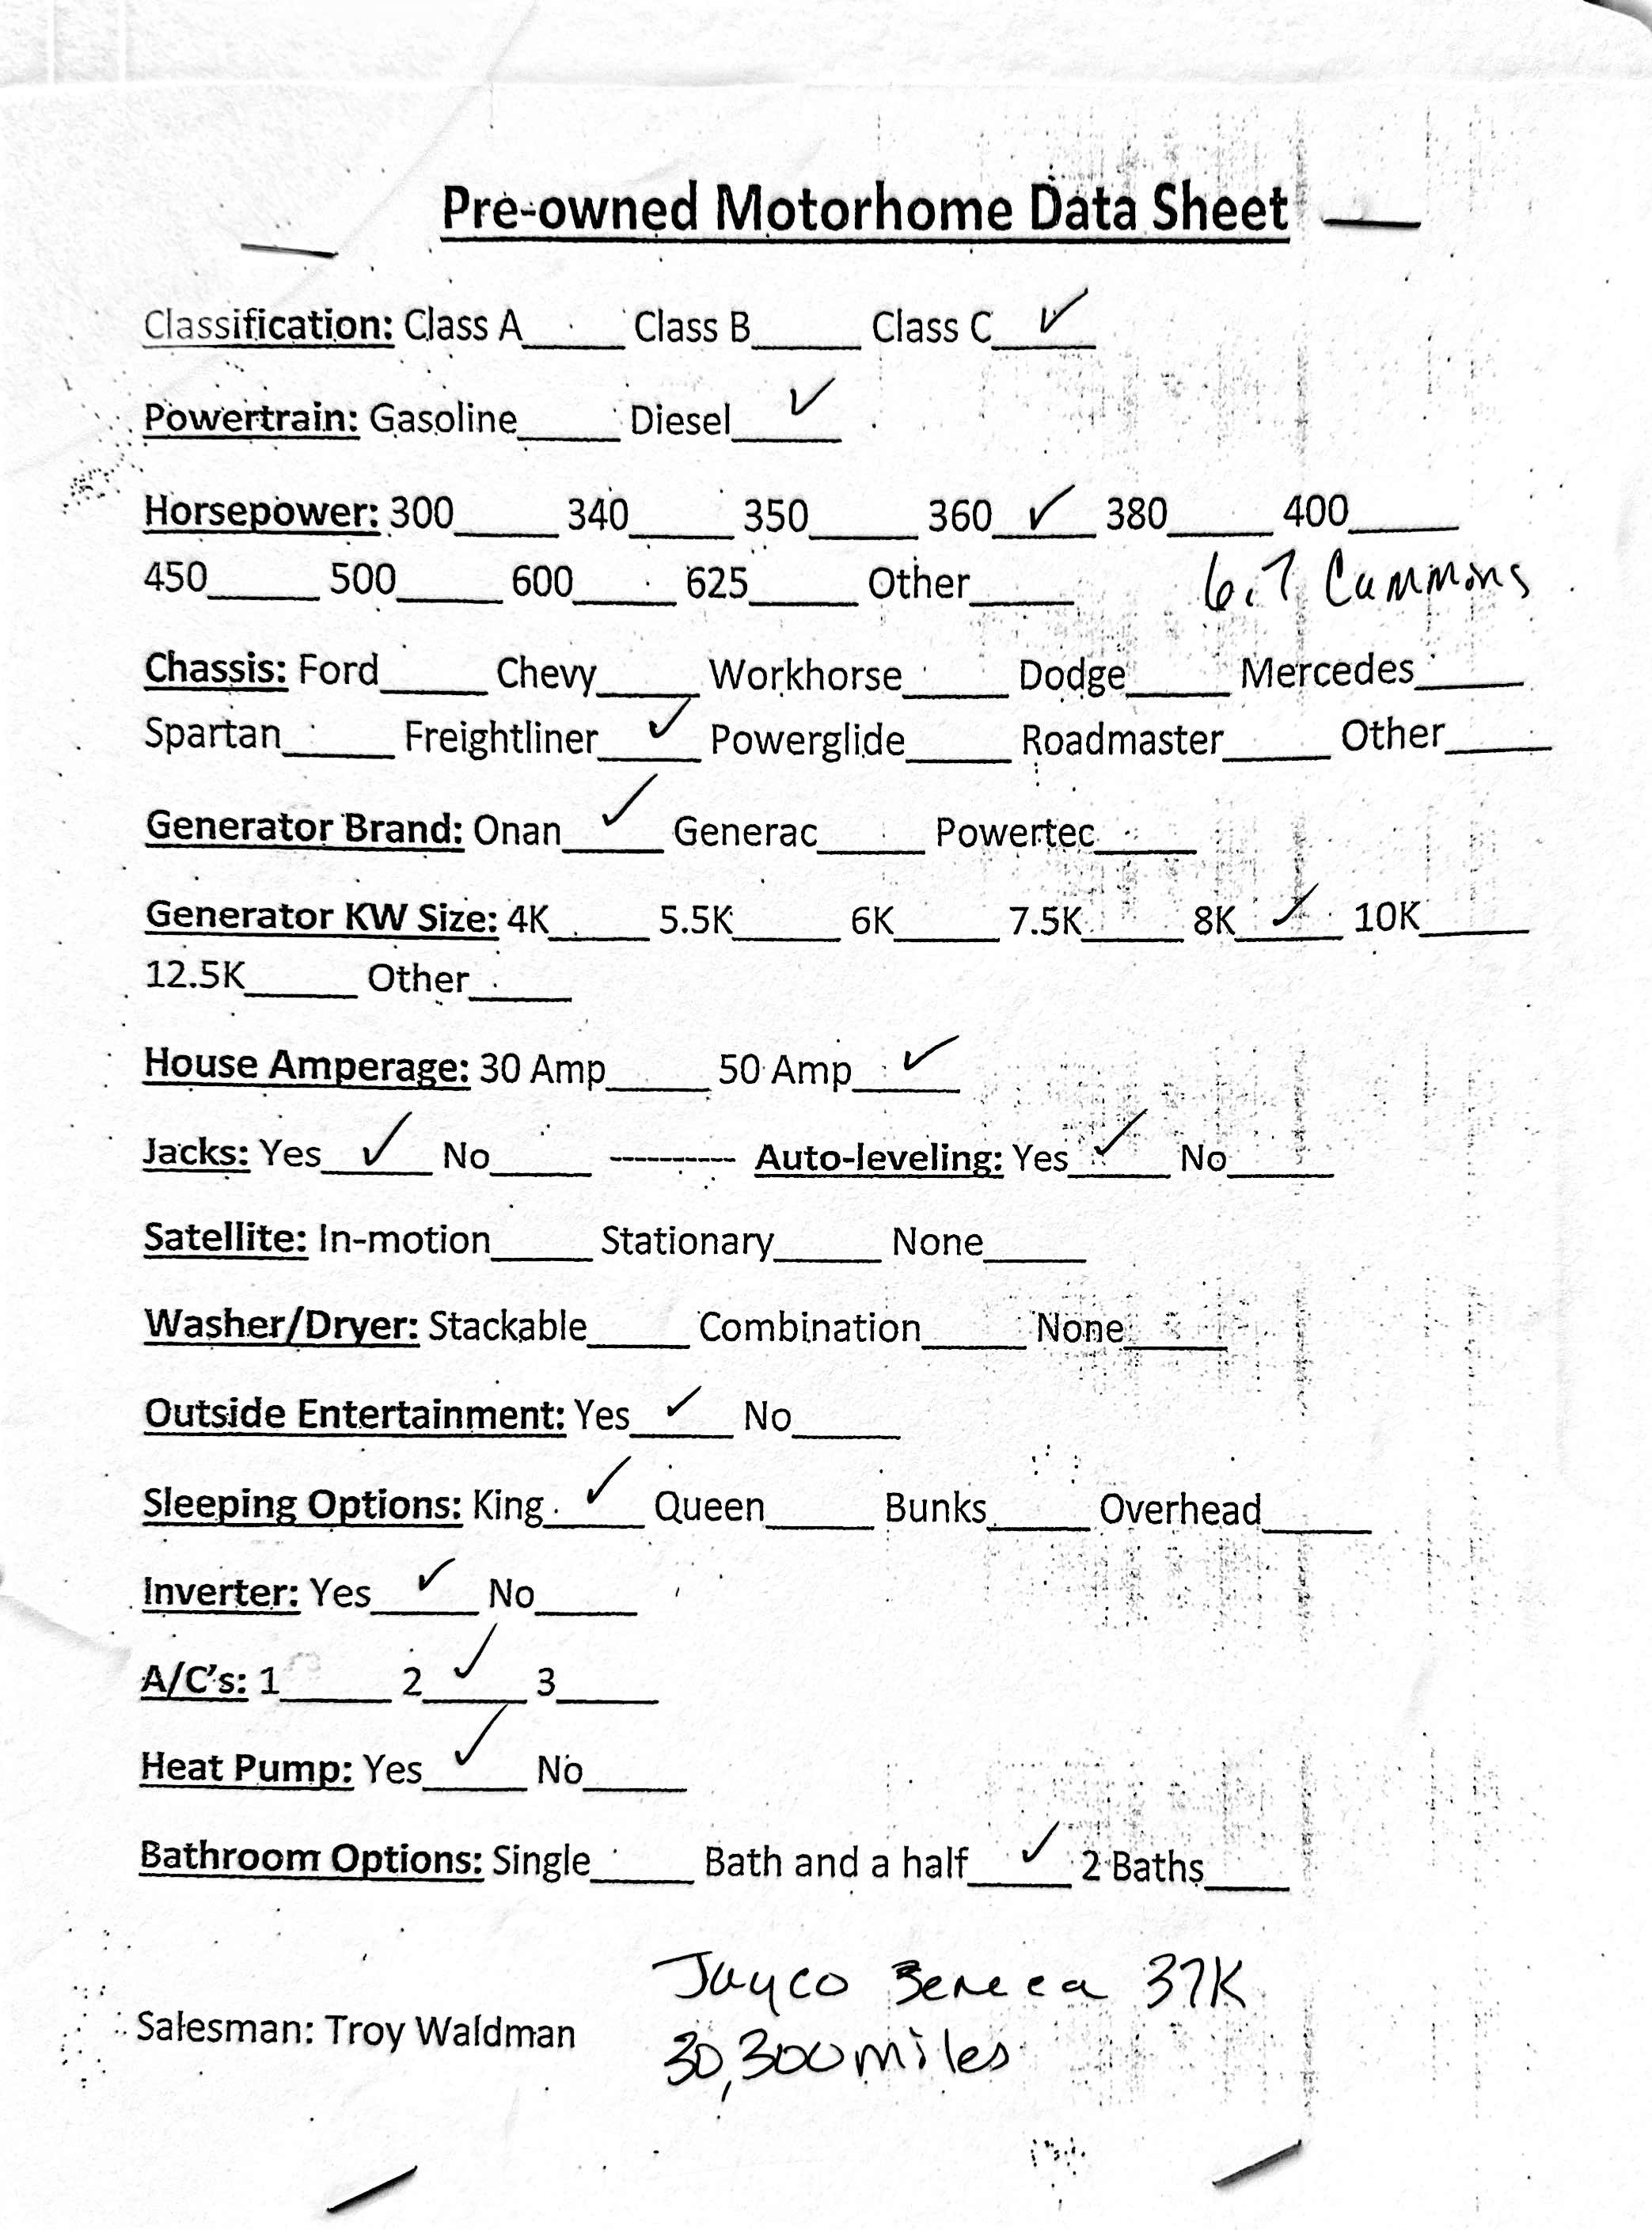 Pre-owned Motorhome Data Sheet
Classification: Class A_____ Class B_____ Class C__✓__
Powertrain: Gasoline_____ Diesel__✓__
Horsepower: 300_____ 340_____ 350_____ 360__✓__ 380_____ 400_____
450_____ 500_____ 600_____ 625_____ Other_____ 6.7 Cummins
Chassis: Ford_____ Chevy_____ Workhorse_____ Dodge_____ Mercedes_____
Spartan_____ Freightliner__✓__ Powerglide_____ Roadmaster_____ Other_____
Generator Brand: Onan__✓__ Generac_____ Powertec_____
Generator KW Size: 4K_____ 5.5K_____ 6K_____ 7.5K_____ 8K__✓__ 10K_____
12.5K_____ Other_____
House Amperage: 30 Amp_____ 50 Amp__✓__
Jacks: Yes__✓__ No_____ ---------- Auto-leveling: Yes__✓__ No_____
Satellite: In-motion_____ Stationary_____ None_____
Washer/Dryer: Stackable_____ Combination_____ None_____
Outside Entertainment: Yes__✓__ No_____
Sleeping Options: King__✓__ Queen_____ Bunks_____ Overhead_____
Inverter: Yes__✓__ No_____
A/C's: 1_____ 2__✓__ 3_____
Heat Pump: Yes__✓__ No_____
Bathroom Options: Single_____ Bath and a half__✓__ 2 Baths_____
Jayco Seneca 37K
Salesman: Troy Waldman
30,300 miles